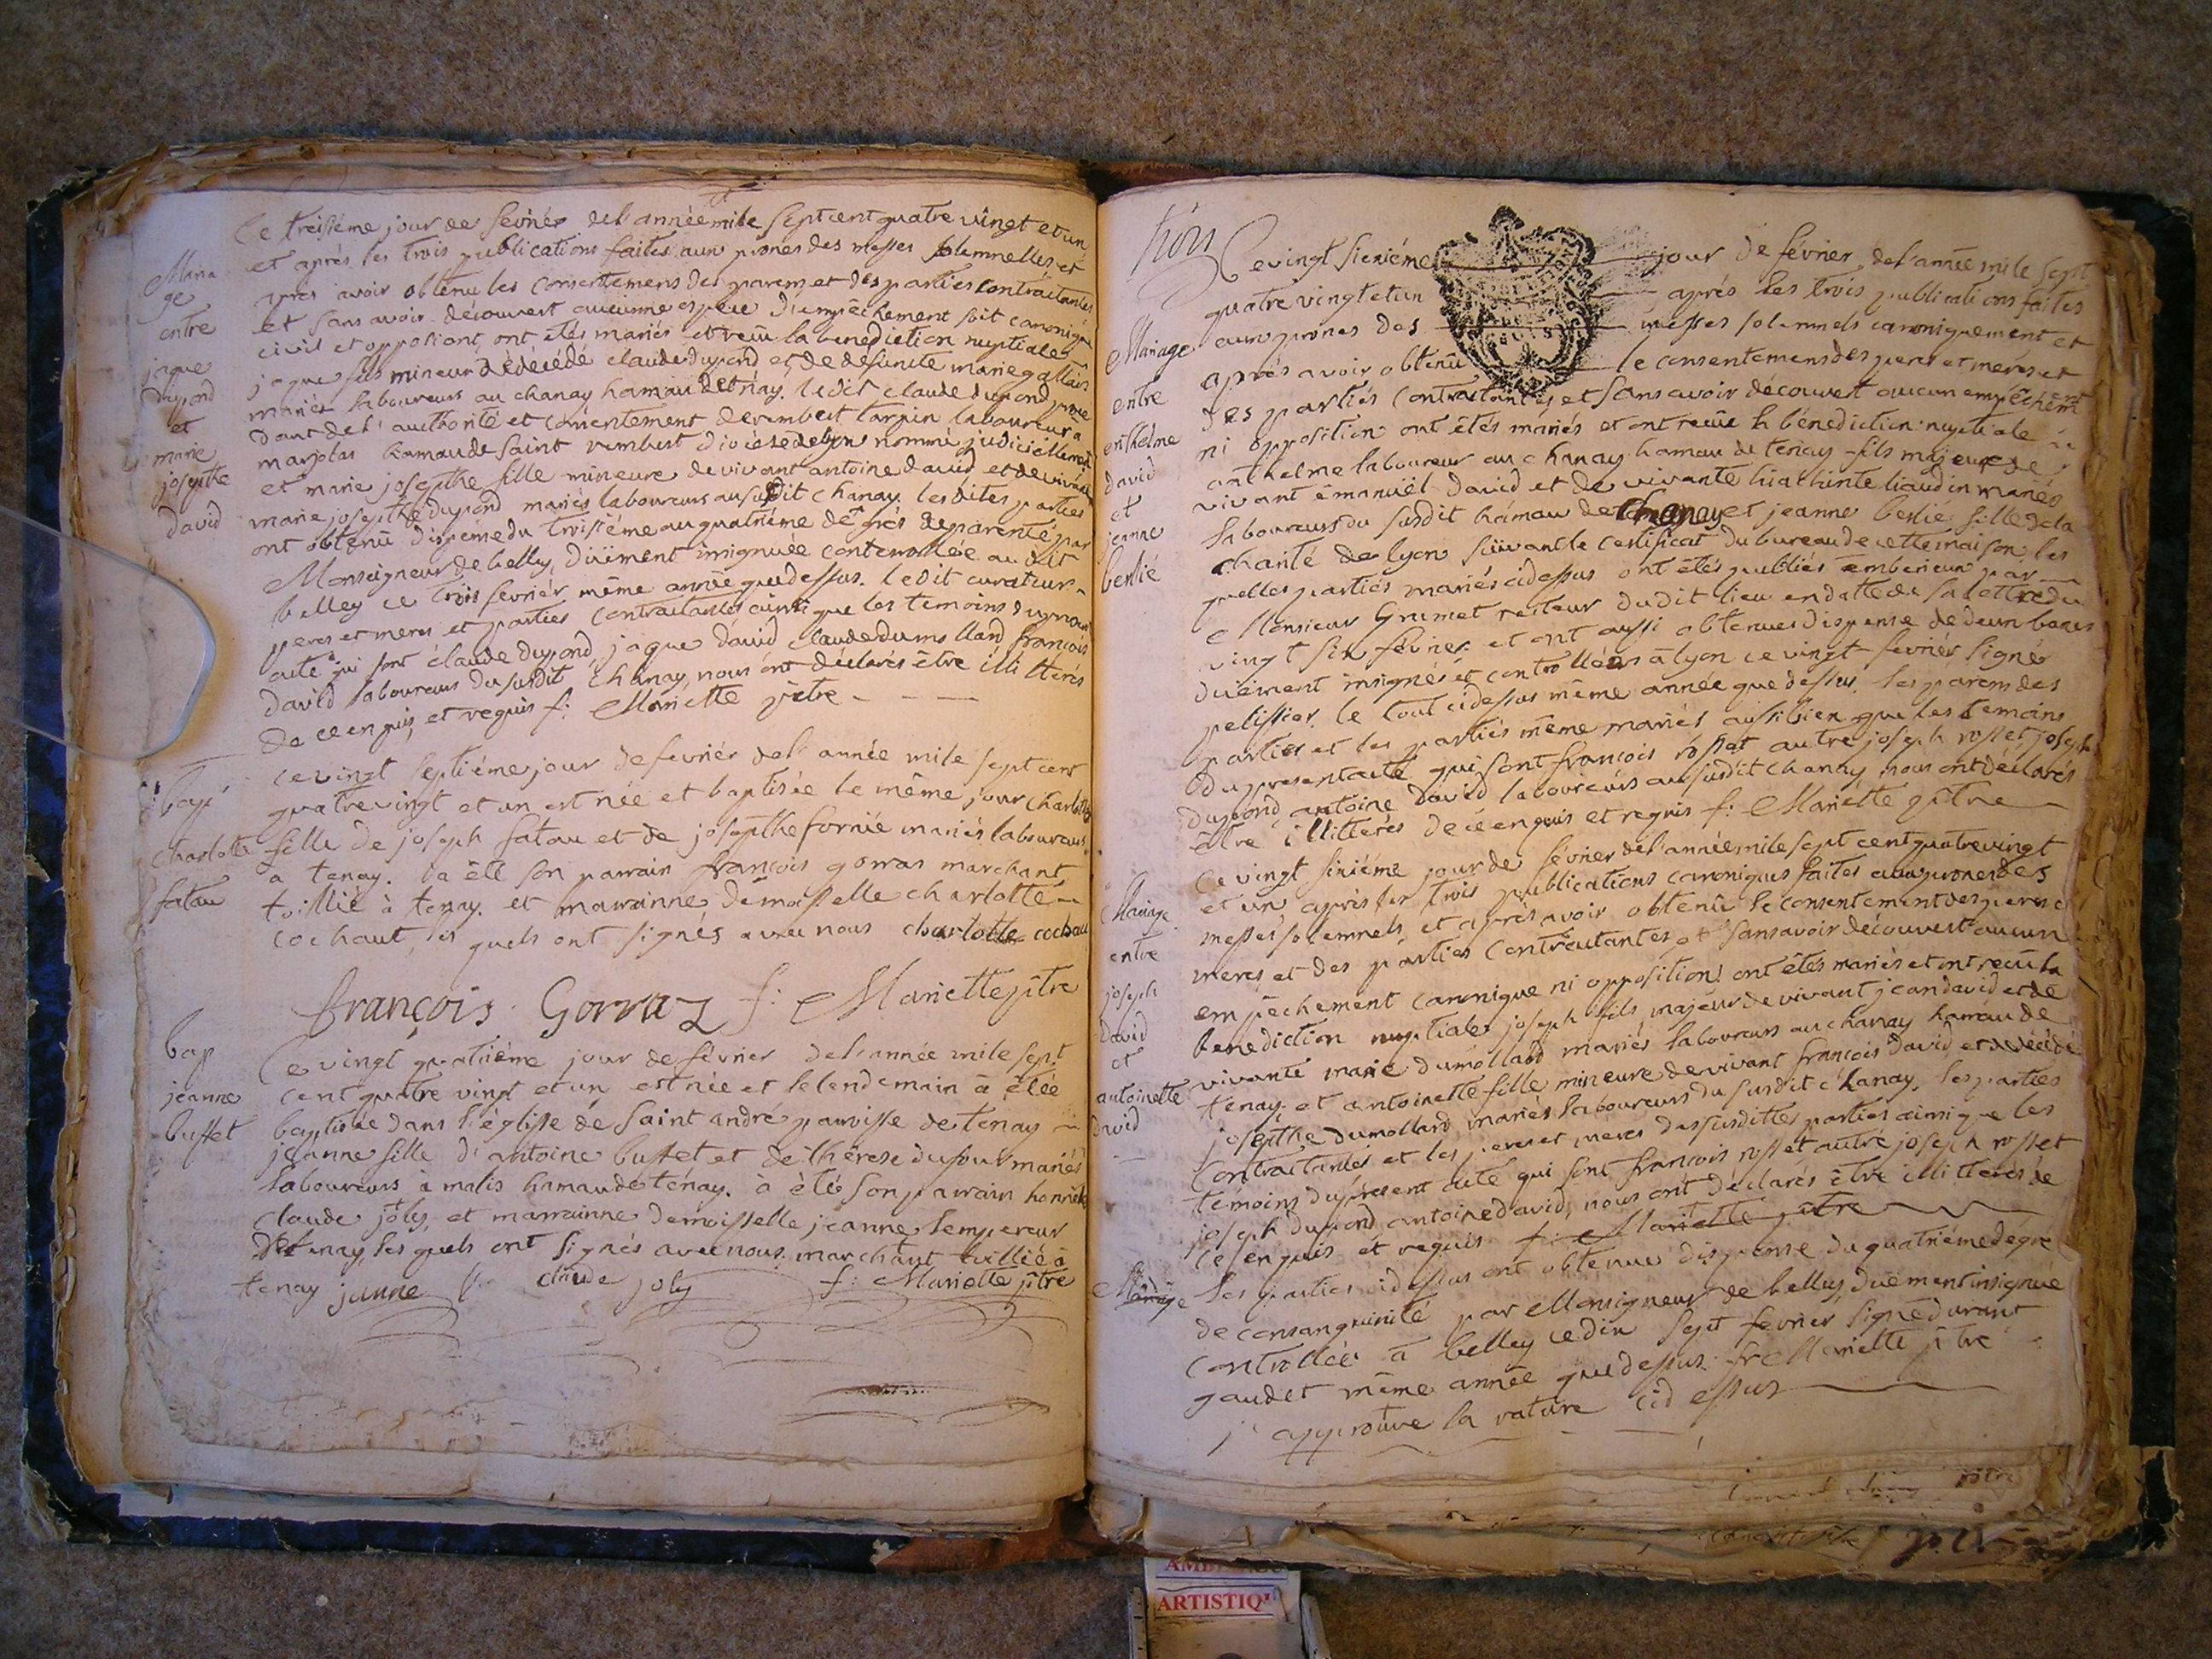 Le treisiéme jour de fevriér del'année mile sept cent quatre vingt et un
et aprés les trois publications faites aux prones des messes solemnelles et
aprés avoir obtenu les consentemens des parens et des partiés contractantes
et sans avoir découvert aucunne espece d'empêchement soit canonique
civil et opposiont, ont étés mariés et reçu la benediction nuptiale
jaque fils mineur de décédé claude dupond et de defunte marie gallais
mariés laboureurs au chanay hamau de tenay. ledit claude dupond
dant de l'authorité et consentement de rembert tarpin laboureur a
marjolas hamau de saint rembert diocése de lyon nommé judiciéllement
et marie josepthe fille mineure de vivant antoine david et de vivante
marie josepthe dupond mariés laboureurs au susdit chanay. les dites parties
ont obtenû dispense du troisiéme au quatriéme dégrés de parenté par
Monseigneur de belley, duëment insignuée controollée au dit
belley ce trois fevriér même année que dessus. le dit curateur
peres et meres et parties contractantes ainsi que les temoins du present
acte qui sont claude dupond, jaque david claude dumollard françois
david laboureurs du susdit chanay, nous ont déclarés être illittérés
de ce enquis, et requis f: Mariette prêtre
Maria
ge
entre
jaque
dupond
et
marie
josepthe
david
ce vingt septiéme jour de fevriér del'année mile sept cent
quatre vingt et un est née et baptisée le même jour charlotte
fille de joseph fatau et de josepthe fornié mariés laboureurs
a tenay. a été son parrain françois gorras marchant
toillié à tenay. et marrainne démoisselle charlotte
cochaut, les quels ont signés avec nous charlotte cochau
françois Gorraz f: Mariette prêtre
bap
charlotte
fatau
Ce vingt quatriéme jour de février de l'année mile sept
cent quatre vingt et un est née et le lendemain à étée
baptisée dans l'église de saint andré parroisse de tenay
jeanne fille d'antoine buffet et de thérese dufour mariés
laboureurs à malis hamau de ténay. à été son parrain honnête
claude joly, et marrainne demoisselle jeanne lempereur
de tenay, les quels ont signés avec nous. marchant toillié à
tenay janne claude joly f: Mariette prêtre
bap
jeanne
buffet
trois
Ce vingt sixiéme jour de février del'année mile sept
quatre vingt et un aprés les trois publications faites
aux prones des messes solemnels canoniquement et
aprés avoir obtenû le consentemens des peres et méres et
des partiés contractantes et sans avoir découvert aucun empêchement
ni opposition ont étés mariés et ont reçue la bénediction nuptiale
anthelme laboureur au chanay hamau de tenay fils majeur de
vivant émanuël david et de vivante hiachinte liaudin mariés
laboureurs du susdit hamau de chanay et jeanne berlié fille de la
charité de lyon suivant le certificat du bureau de cette maison. les
quelles partiés mariés cidessus ont étés publiés amberieux par
Monsieur Grumet recteur dudit lieu en datte de sa lettre du
vingt six février. et ont aussi obtenues dispense de deux bancs
duëment insignés et controllées à lyon ce vingt février signé
pelissier. le tout cidessus même année que dessus. les parens des
parties et les partiés même mariés aussi bien que les temoins
du present acte qui sont françois rosset autre joseph rosset joseph
dupond antoine david laboureurs au susdit chanay nous ont déclarés
être illittérés de ce enquis et requis f: Mariette prêtre
Mariage
entre
enthelme
david
et
jeanne
berlié
Ce vingt sixiéme jour de février del'année mile sept cent quatre vingt
et un aprés les trois publications canoniques faites aux prones des
messes solemnels, et aprés avoir obtenû le consentement des peres et
meres et des parties contractantes et sans avoir découvert aucun
empêchement canonique ni opposition ont étés mariés et ont reçu la
benediction nuptiale joseph fils majeur de vivant jean david et de
vivante marie dumollard mariés laboureurs au chanay hamau de
tenay. et antoinette fille mineure de vivant françois david et de décédée
josepthe dumollard mariés laboureurs du susdit chanay. les parties
contractantes et les peres et meres des susdittes parties ainsi que les
témoins du present acte qui sont françois rosset autre joseph rosset
joseph dupond antoine david, nous ont declarés être illitterés de
ce enquis et requis f: Mariette prêtre
les parties cidessus ont obtenue dispense du quatriéme dégré
de consanguinité par Monsigneur de belley, duëment insignué
controllée à belley ce dix sept fevriér signé durant
gaudet même année que dessus. f: Mariette prêtre
j'approuve la rature cidessus
Mariage
entre
joseph
david
et
antoinette
david
Mariage
AMB
ARTISTIQ